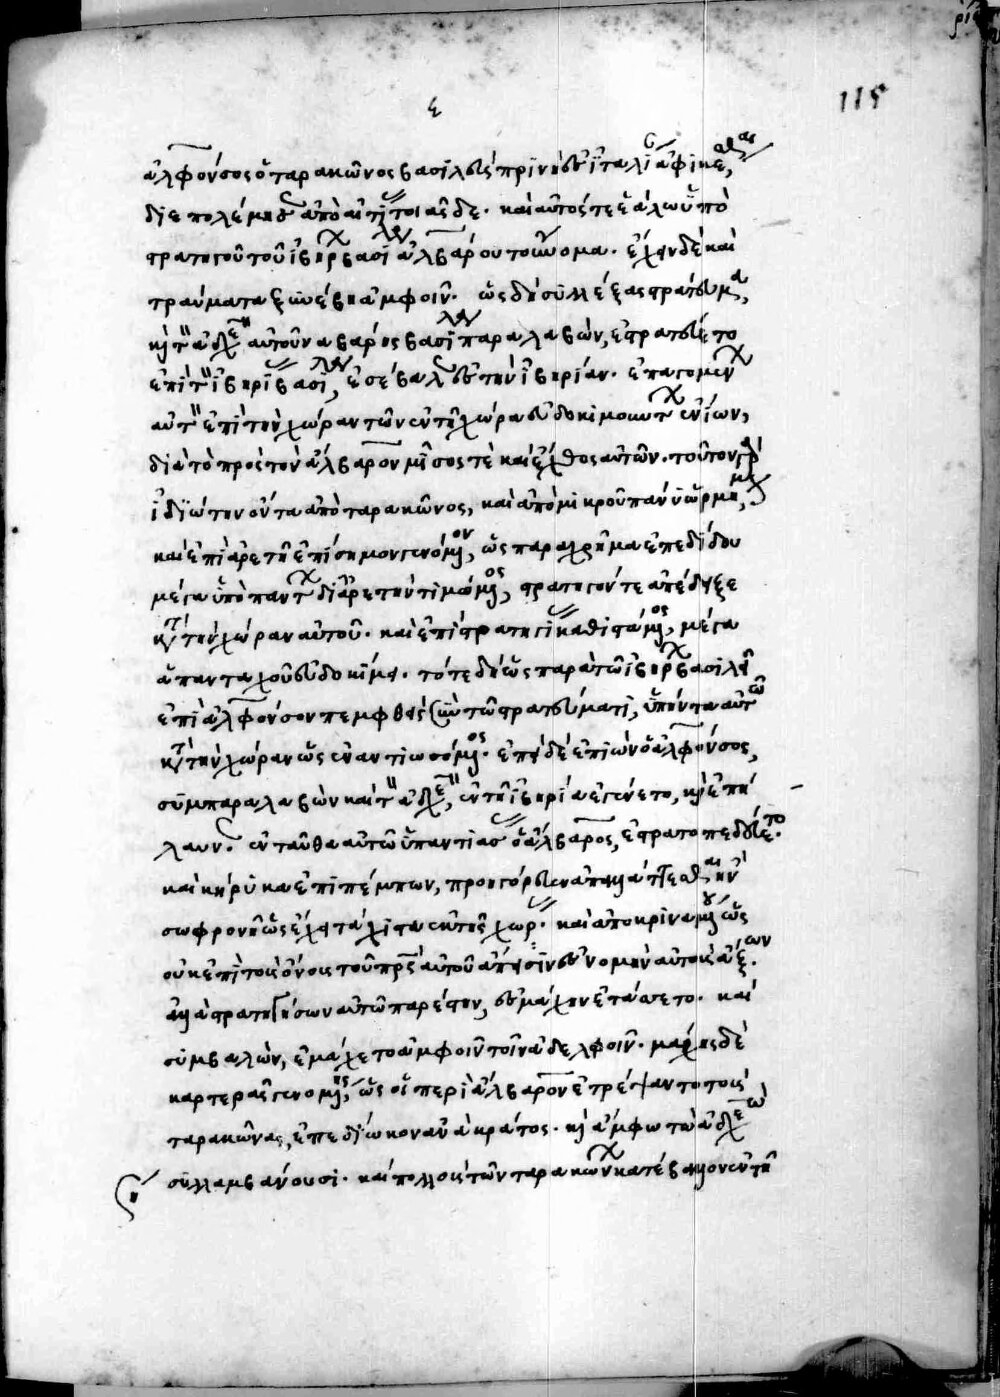 ε
115
ἀλφόνσος ὁ ταρακῶνος βασιλεὺς πρὶν ἢ ἐς ἰταλίαν ἀφικέσθαι,
διεπολέμησεν ἀπὸ αἰτίας τοιᾶσδε. καὶ αὐτός τε ἑάλω ὑπὸ
στρατηγοῦ τοῦ ἰβήρων βασιλέως ἀλβάρου τοὔνομα. ἔχει δὲ καὶ
τραύματα ξυνέβη ἀμφοῖν. ὡς δὴ συλλέξας στράτευμα,
καὶ τὸν ἀδελφὸν αὐτοῦ ναβάρης βασιλέα παραλαβὼν, ἐστρατεύετο
ἐπὶ τὸν ἰβηρίας βασιλέα, ἐσέβαλεν ἐς τὴν ἰβηρίαν. ἐπαγομένων
αὐτὸν ἐπὶ τὴν χώραν τῶν ἐν τῇ χώρᾳ εὐδοκιμούντων ἐνίων,
διὰ τὸ πρὸς τὸν ἄλβαρον μῖσος τε καὶ ἔχθος αὐτῶν. τοῦτον γὰρ
ἰδιώτην ὄντα ἀπὸ ταρακῶνος, καὶ ἀπὸ μικροῦ πάνυ ὡρμημένον,
καὶ ἐπὶ ἀρετῇ ἐπίσημον γενόμενον, ὡς παραχρῆμα ἐπεδίδου
μέγα ὑπὸ πάντων δι' ἀρετὴν τιμώμενος, στρατηγόν τε ἀπέδειξε
κατὰ τὴν χώραν αὐτοῦ. καὶ ἐπὶ στρατηγίας καθιστάμενος, μέγα
ἁπανταχοῦ εὐδοκίμει. τότε δὴ ὡς παρὰ τῶ ἰβήρων βασιλεῖ
ἐπὶ ἀλφόνσον πεμφθεὶς ξὺν τῶ στρατεύματι, ὑπήντα αὐτῶ
κατὰ τὴν χώραν ὡς ἐναντιωσόμενος. ἐπεὶ δὲ ἐπιὼν ὁ ἀλφόνσος,
συμπαραλαβὼν καὶ τὸν ἀδελφὸν, ἐν τῇ ἰβηρίᾳ ἐγένετο, καὶ ἐπή
λαυνεν. ἐνταῦθα αὐτῶ ὑπαντιάσας ὁ ἄλβαρος, ἐστρατοπεδεύετο.
καὶ κήρυκα ἐπιπέμπων, προηγόρευεν ἀπαλλάττεσθαι ἢν
σωφρονῇ ὡς ἔχει τάχιστα ἐκ τῆς χώρας. καὶ ἀποκριναμένου ὡς
οὐκ ἐπὶ τοῖς ὄνοις τοῦ πρὸς αὐτοῦ ἀπίῃσιν εὐνομὴν αὐτοῖς ἀξων.
ἀλλὰ στρατηγήσων αὐτῶ παρέστη, ἐς μάχην ἐτάσσετο. καὶ
συμβαλὼν, ἐμάχετο ἀμφοῖν τοῖν ἀδελφοῖν. μάχης δὲ
καρτερᾶς γενομένης, ὡς οἱ περὶ ἄλβαρον ἐτρέψαντο τοὺς
ταρακῶνας, ἐπεδίωκον ἀνὰ κράτος. καὶ ἄμφω τὼ ἀδελφεὼ
συλλαμβάνουσι. καὶ πολλοὺς τῶν ταρακώνων κατέβαλλον ἐν τῇ